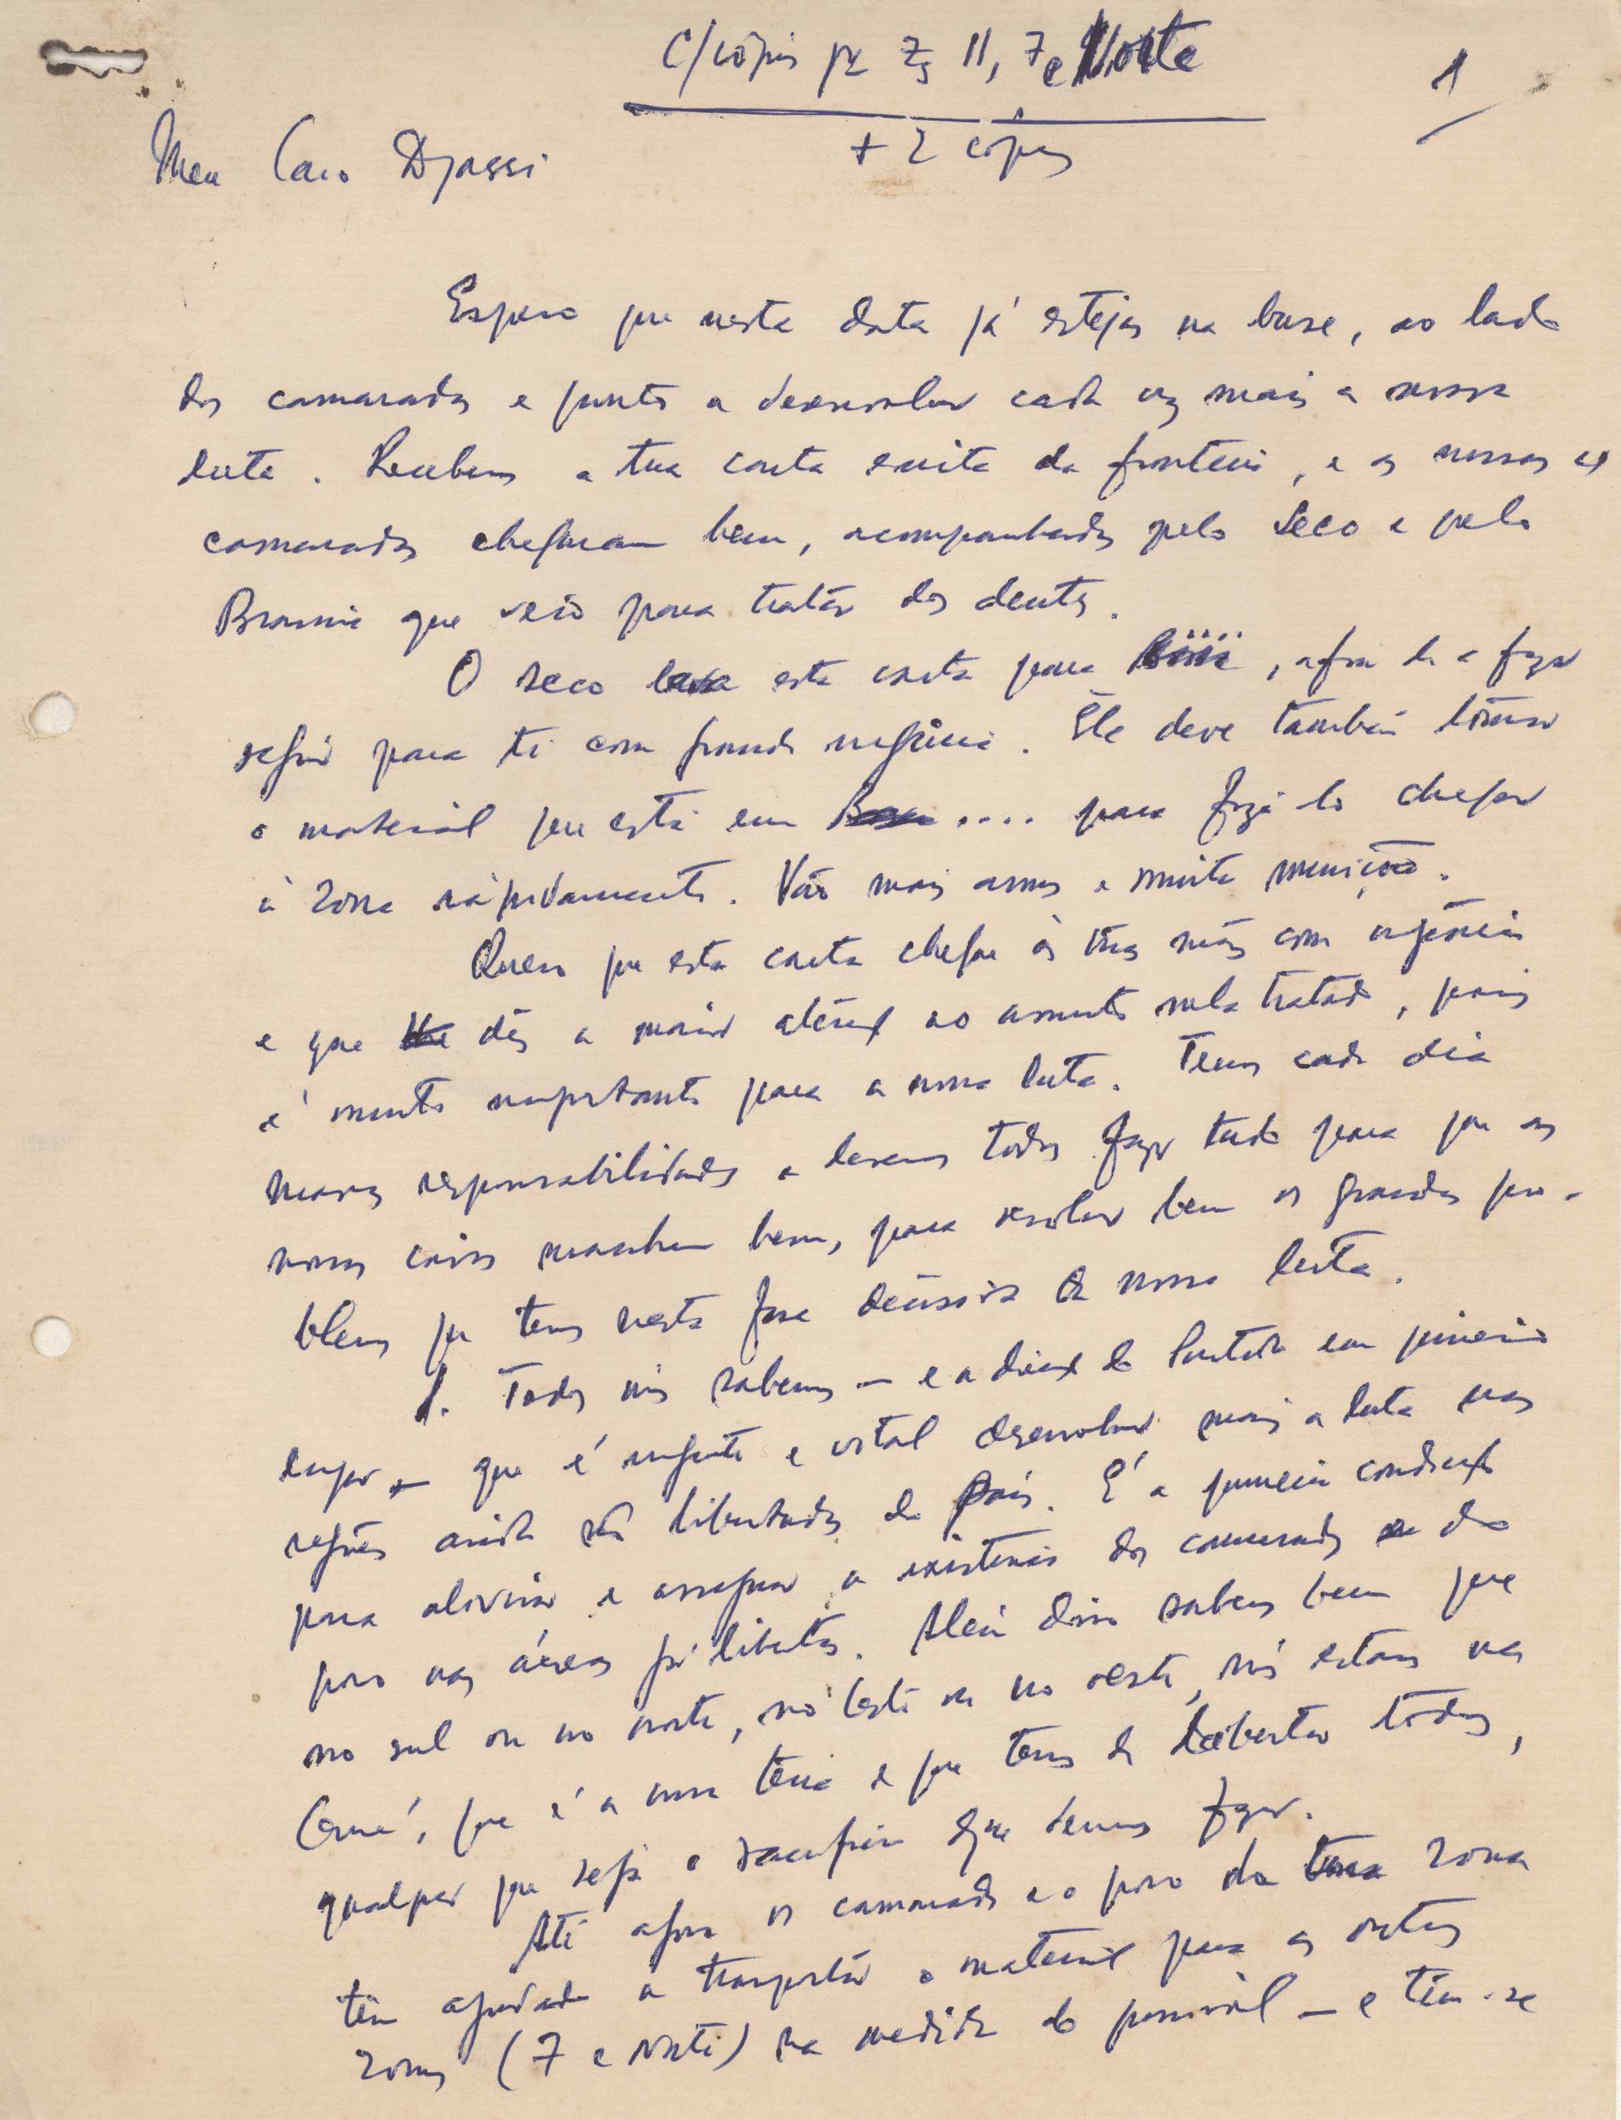 C/cópia pª Zs 11, 7 e Norte
1
+ 2 cópias
Meu Caro Djassi
Espero que nesta data já estejas na base, ao lado
dos camaradas e pronto a desenvolver cada vez mais a nossa
luta. Recebemos a tua carta escrita da fronteira, e os nossos
camaradas chegaram bem, acompanhados pelo Seco e pelo
que veio para tratar dos dentes.
O Seco leva esta carta para , a fim de a fazer
seguir para ti com grande urgência. Êle deve também tomar
o material que está em .... para fazê-lo chegar
à zona ràpidamente. Vão mais armas e muita munição.
Quero que esta carta chegue às tuas mãos com urgência
e que dês a maior atenção ao assunto nela tratado, pois
é muito importante para a nossa luta. Temos cada dia
mais responsabilidades e devemos todos fazer tudo para que as
nossas coisas marchem bem, para resolver bem os grandes pro-
blemas que temos nesta fase decisiva da nossa luta.
1. Todos nós sabemos — e a direcção do Partido em primeiro
lugar — que é urgente e vital desenvolver mais a luta nas
regiões ainda não libertadas do País. É a primeira condição
para aliviar e assegurar a existência dos camaradas e do
povo nas áreas já libertas. Além disso sabemos bem que
no sul ou no norte, no leste ou no oeste, nós estamos na
Guiné, que é a nossa terra e que temos de libertar tôda,
qualquer que seja o sacrifício que temos fazer.
Até agora os camaradas e o povo da tua zona
têm ajudado a transportar o material para as outras
zonas (7 e Norte) na medida do possível — e têm-se